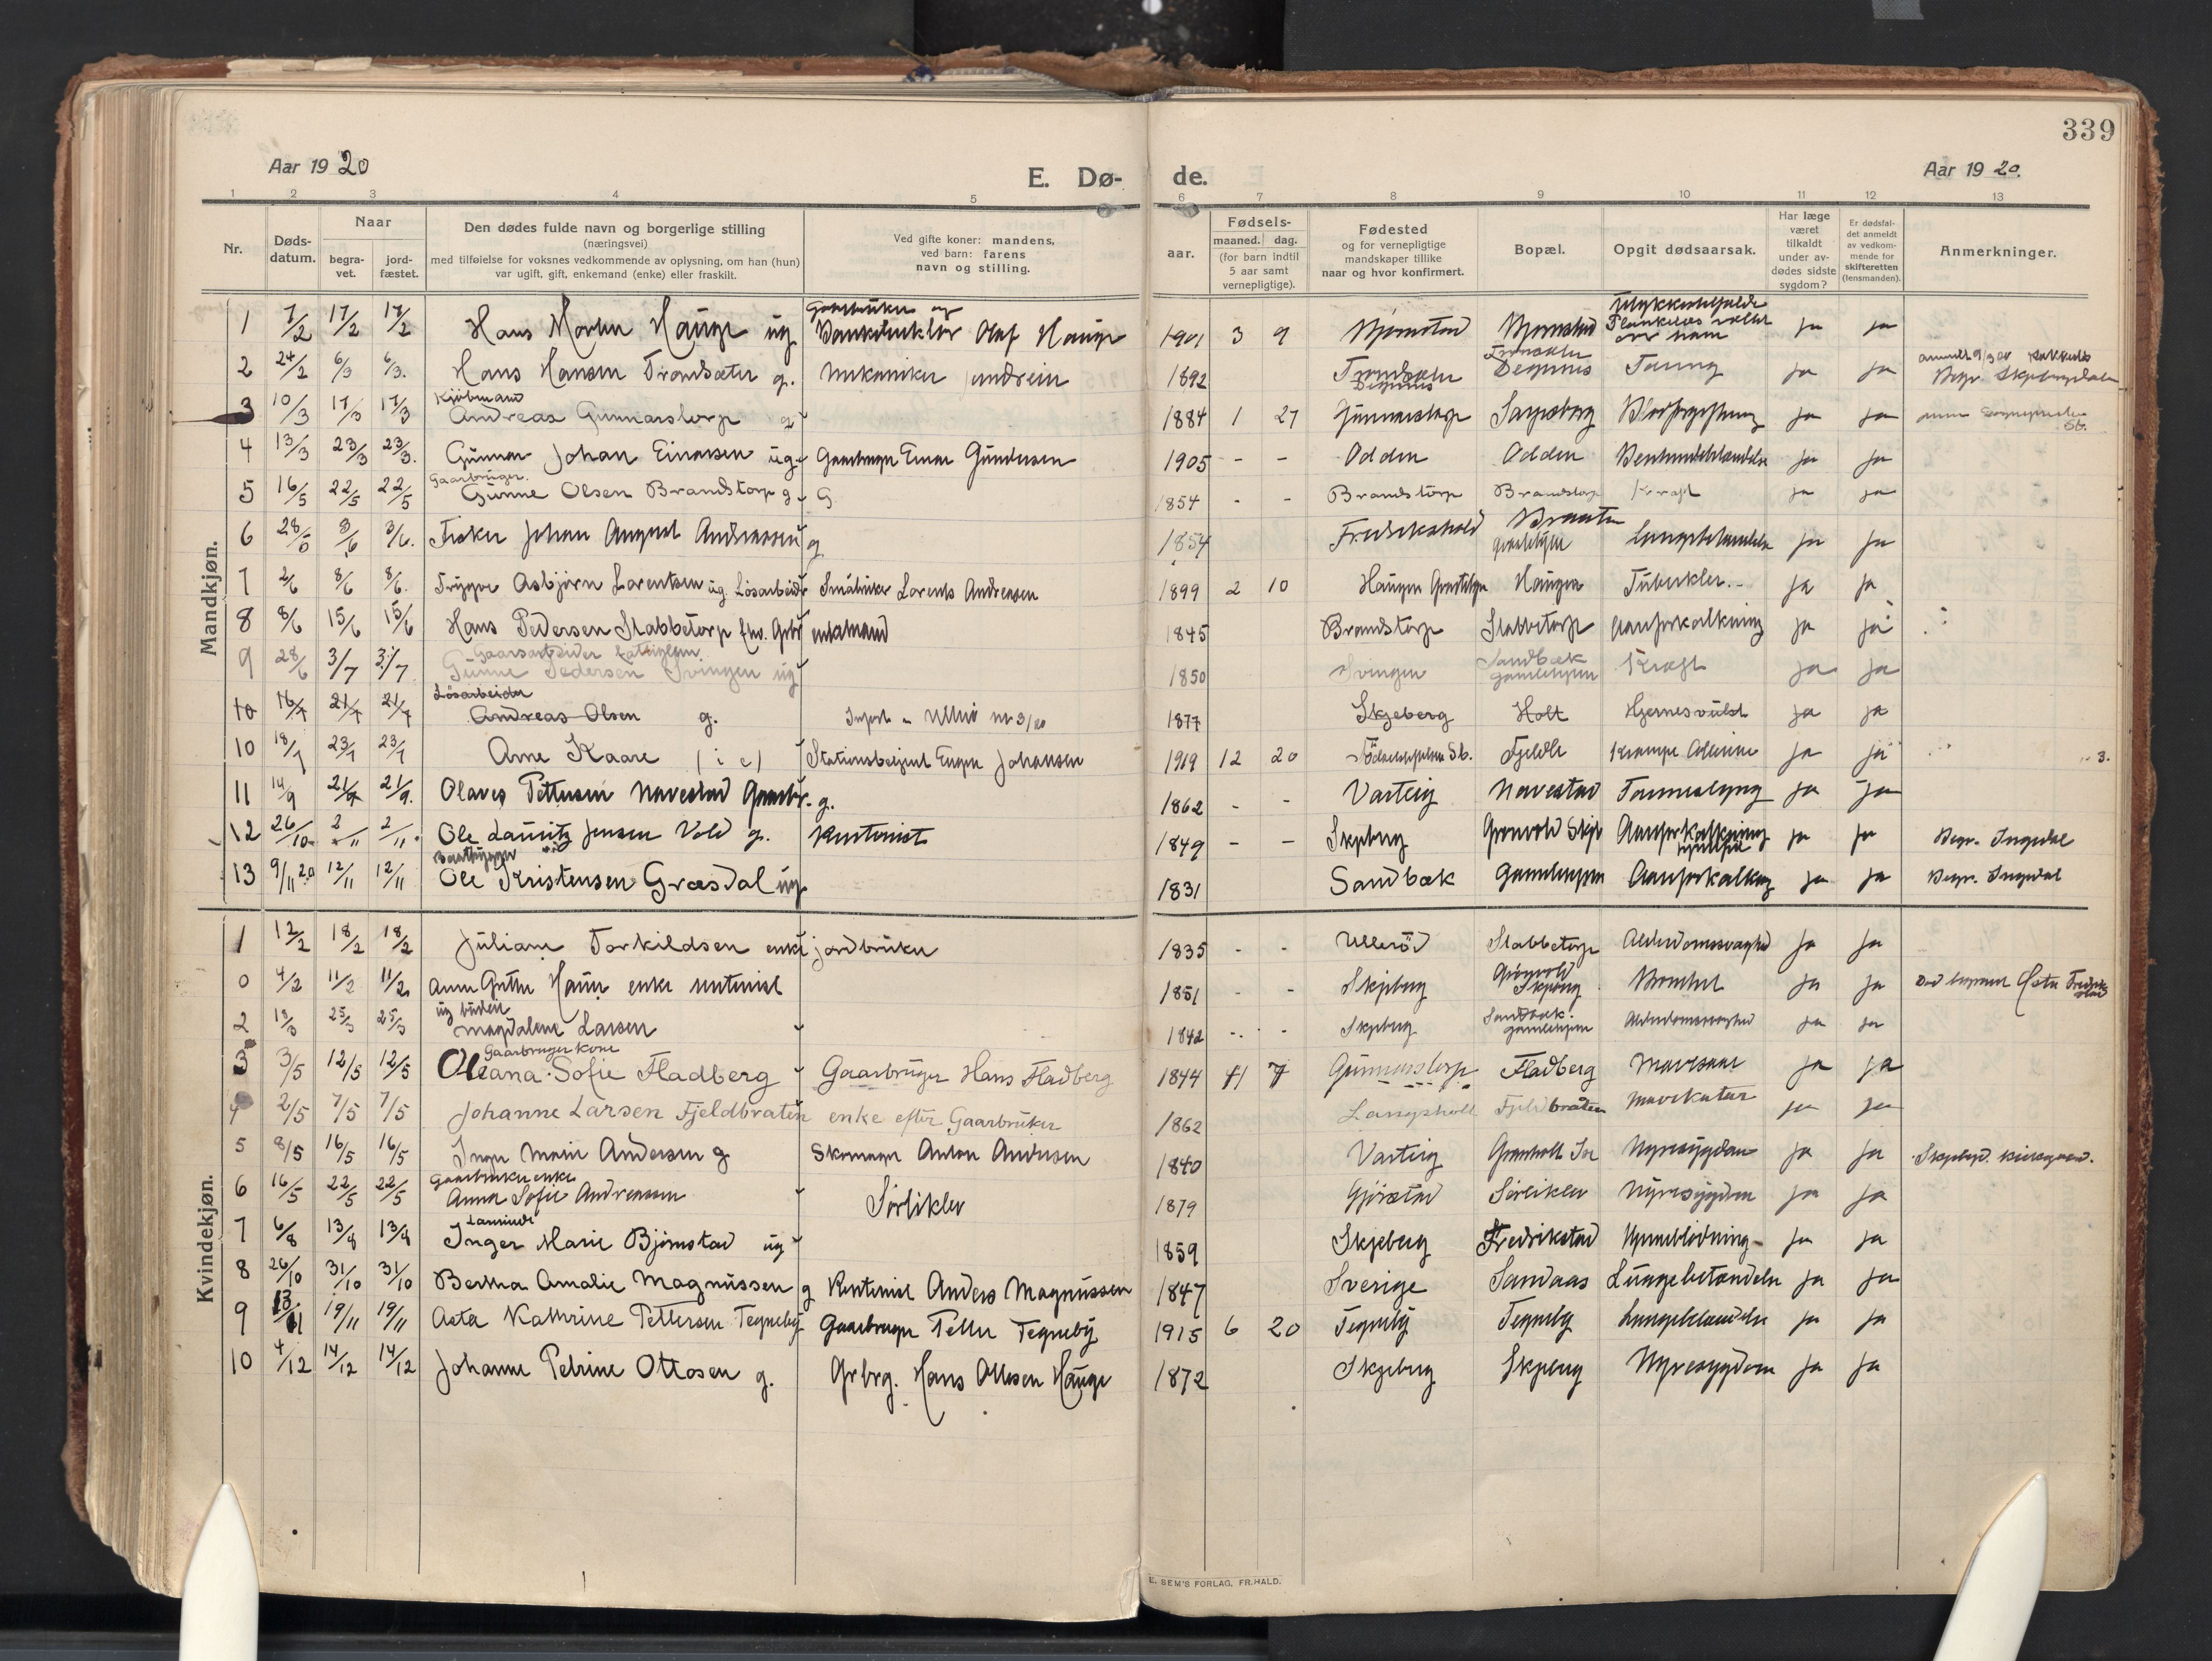 339
Aar 1920 E. Dø- de. Aar 1920.
1 2 3 4 5 6 7 8 9 10 11 12 13
Nr.
Døds-
datum.
Naar
begra-
vet.
jord-
fæstet.
Den dødes fulde navn og borgerlige stilling
(næringsvei)
med tilføielse for voksnes vedkommende av oplysning, om han (hun)
var ugift, gift, enkemand (enke) eller fraskilt.
Ved gifte koner: mandens,
ved barn: farens
navn og stilling.
Fødsels-
aar.
maaned. dag.
(for barn indtil
5 aar samt
vernepligtige).
Fødested
og for vernepligtige
mandskaper tillike
naar og hvor konfirmert.
Bopæl.
Opgit dødsaarsak.
Har læge
været
tilkaldt
under av-
dødes sidste
sygdom?
Er dødsfal-
det anmeldt
av vedkom-
mende for
skifteretten
(lensmanden).
Anmerkninger.
Mandkjøn.
Gaardbruker og
1 7/2 17/2 17/2 Hans Martin Hauge ug Bankdirektør Olaf Hauge 1901 3 9 ja ja
2 24/2 6/3 6/3. Hans Hansen Tromsæter g. Mekaniker 1892 Tæring ja ja
Kjøbmand
3 10/3 17/3 17/3 Andreas Gunnarstorp g 1884 1 27 Gunnarstorp Sarpsborg Blodforgiftning ja ja
4 13/3 23/3 23/3. Gunnar Johan Einarsen ug. Gaardbruger Einar Gundersen 1905 - - Odden Odden ja ja
Gaarbruger.
5 16/5 22/5 22/5 Gunne Olsen Brandstorp g G. 1854 - - Brandstorp Brandstorp Kræft ja ja
6 28/5 3/6 3/6. Fisker Johan August Andreassen g 1854 Fredrikshald Braaten Lungebetændelse ja ja
7 2/6 8/6 8/6. Trygve Asbjørn Lorentsen ug. Løsarbeider Småbruker Lorents Andreasen 1899 2 10 Haugen Haugen Tuberkler.- ja ja
8 8/6 15/6 15/6 Hans Pedersen Stabbetorp enkemand 1845 Brandstorp Stabbetorp Aareforkalkning ja ja
9 28/6 3/7 3/7 Gunne Pedersen Svingen ug 1850 Svingen Sandbæk Kræft ja ja
Løsarbeider
10 16/7 21/7 21/7 Andreas Olsen g. 1877 Skjeberg Holt ja ja
10 18/7 23/7 23/7 Arne Kaare Stationsbetjent Johansen 1919 12 20 Krampe ja ja
11 14/9 21/9 21/9. Olaves Pettersen Navestad Gaardbr. g. 1862 - - Varteig Navestad ja ja
12 26/10 2/11 2/11. Ole Lauritz Jensen Vold g. Rentenist 1849 - - Skjeberg Aareforkalkning ja ja Begr. Ingedal
Baatbygger
13 9/11 20 12/11 12/11 Ole Kristensen Græsdal ug 1831 Sandbæk Aareforkalkning ja ja Begr. Ingedal
Kvindekjøn.
1 12/2 18/2 18/2 Juliane Torkildsen enke jordbruker 1835 - - Ullerød Stabbetorp Alderdomssvaghed ja ja
0 4/2 11/2 11/2 Anna enke rentenist 1851 - - Skjeberg ja ja
ug budeie
2 25/3 25/3 Magdalene Larsen 1842 Skjeberg Sandbæk Alderdomssvaghed ja ja
Gaarbruger kone
3 3/5 12/5 12/5 Oleana Sofie Fladberg Gaarbruger Hans Fladberg 1844 11 7 Gunnarstorp Fladberg Mavesaar ja ja
4 2/5 7/5 7/5 Johanne Larsen Fjeldbraten enke efter Gaarbruker 1862 Fjeldbraten Mavekatar ja ja
5 8/5 16/5 16/5 Inga Marie Andersen g Skomager Anton Andersen 1840 Varteig Nyresygdom ja ja
Gaardbruker enke
6 16/5 22/5 22/5 Anna Sofie Andreassen Sørliklev 1879 Sørliklev Nyresygdom ja ja
7 6/8 13/8 13/8 Inger Marie Bjørnstad ug 1859 Skjeberg Fredrikstad Hjerneblødning ja ja
8 26/10 31/10 31/10 Bertha Amalie Magnussen g Rentenist Anders Magnussen 1847 Sverige Sandaas Lungebetændelse ja ja
9 13/11 19/11 19/11 Asta Kathrine Pettersen Tegneby Gaardbruger Petter Tegneby 1915 6 20 Tegneby Tegneby Lungebetændelse ja ja
10 4/12 14/12 14/12 Johanne Petrine Ottosen g. Grbrg. Hans Ottesen Hauge 1872 Skjeberg Skjeberg Nyresygdom ja ja
E. SEM'S FORLAG, FR.HALD.